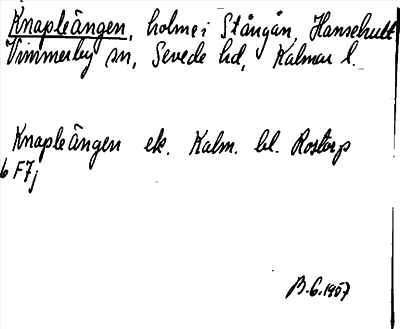 Knapleängen, holme i Stångån, Hansehult
Vimmerby sn, Sevede hd, Kalmar l.
Knapleängen ek. Kalm. bl. Rostorp
6 F7j
B.G. 1957